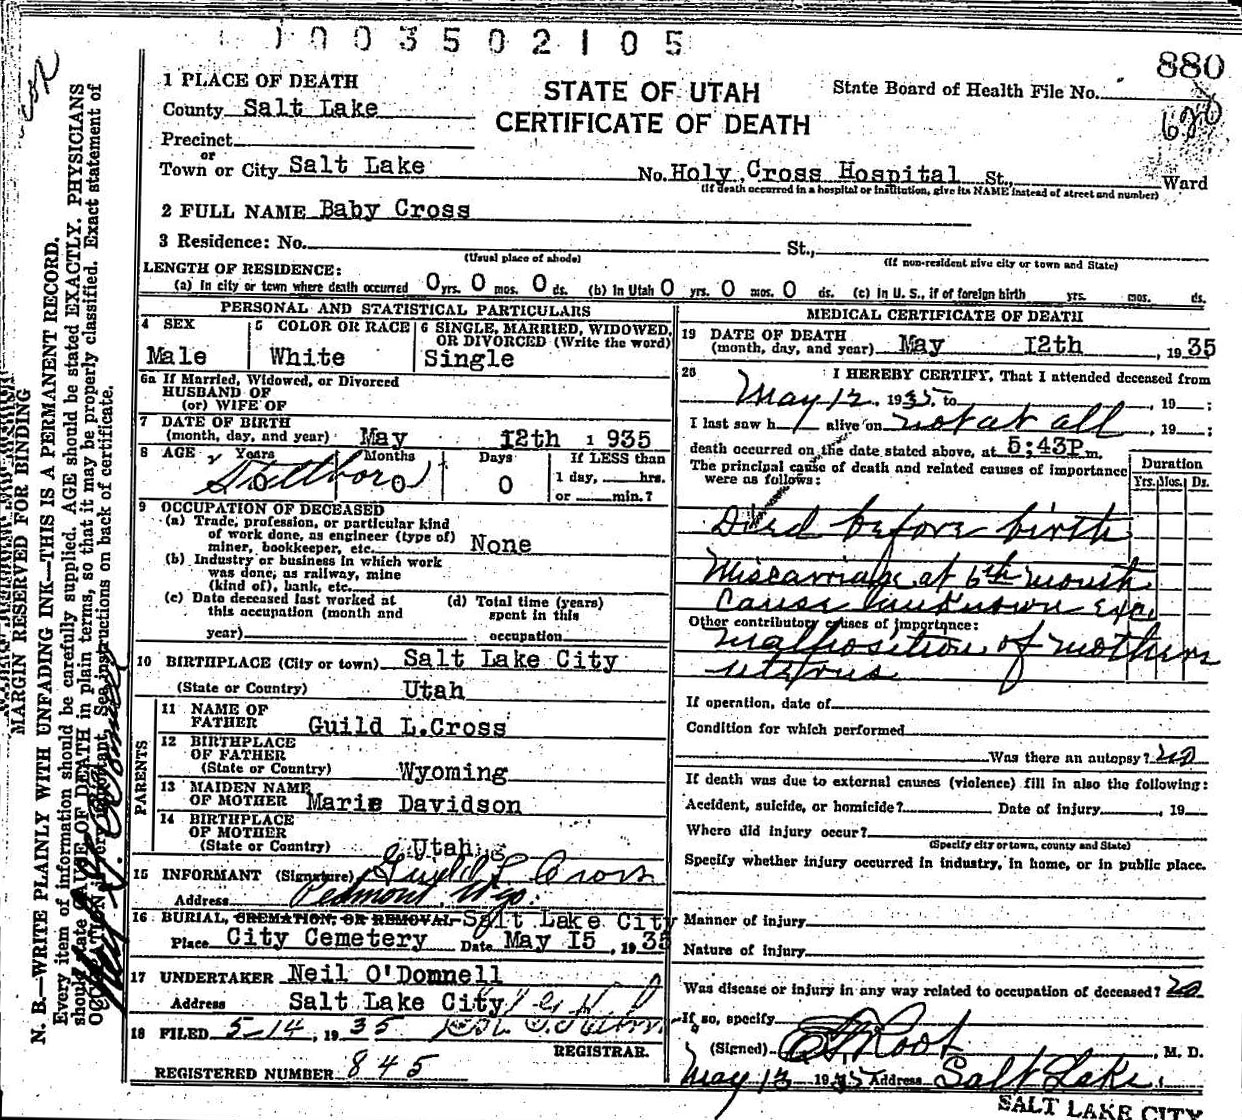 1003502105
880
STATE OF UTAH
CERTIFICATE OF DEATH
State Board of Health File No.
680
1 PLACE OF DEATH
County Salt Lake
Precinct
or
Town or City Salt Lake No. Holy Cross Hospital St., Ward
(If death occurred in a hospital or institution, give its NAME instead of street and number)
2 FULL NAME Baby Cross
3 Residence: No. St.,
(Usual place of abode) (If non-resident give city or town and State)
LENGTH OF RESIDENCE:
(a) In city or town where death occurred 0 yrs. 0 mos. 0 ds. (b) In Utah 0 yrs. 0 mos. 0 ds. (c) In U. S., if of foreign birth yrs. mos. ds.
PERSONAL AND STATISTICAL PARTICULARS
4 SEX
Male
5 COLOR OR RACE
White
6 SINGLE, MARRIED, WIDOWED, OR DIVORCED (Write the word)
Single
6a If Married, Widowed, or Divorced
HUSBAND OF
(or) WIFE OF
7 DATE OF BIRTH
(month, day, and year) May 12th 1935
8 AGE Years Months Days If LESS than
Stillborn 0 0 0 1 day, hrs.
or min.?
9 OCCUPATION OF DECEASED
(a) Trade, profession, or particular kind
of work done, as engineer (type of)
miner, bookkeeper, etc. None
(b) Industry or business in which work
was done, as railway, mine
(kind of), bank, etc.
(c) Date deceased last worked at
this occupation (month and
year)
(d) Total time (years)
spent in this
occupation
10 BIRTHPLACE (City or town) Salt Lake City
(State or Country) Utah
PARENTS
11 NAME OF
FATHER Guild L.Cross
12 BIRTHPLACE
OF FATHER
(State or Country) Wyoming
13 MAIDEN NAME
OF MOTHER Marie Davidson
14 BIRTHPLACE
OF MOTHER
(State or Country) Utah
15 INFORMANT (Signature) Guild L Cross
Address Piedmont Wyo.
16 BURIAL, CREMATION, OR REMOVAL Salt Lake City
Place City Cemetery Date May 15, 1935
17 UNDERTAKER Neil O'Donnell
Address Salt Lake City
18 FILED 5-14, 1935
REGISTRAR.
REGISTERED NUMBER 845
MEDICAL CERTIFICATE OF DEATH
19 DATE OF DEATH
(month, day, and year) May 12th, 1935
20 I HEREBY CERTIFY, That I attended deceased from
May 12, 1935, to , 19 ;
I last saw h alive on not at all, 19 ;
death occurred on the date stated above, at 5:43P m.
The principal cause of death and related causes of importance
were as follows:
Duration
Yrs. Mos. Ds.
Died before birth
Miscarriage at 6th month
Cause unknown exc.
Other contributory causes of importance:
malposition of mothers
uterus
If operation, date of
Condition for which performed
Was there an autopsy? no
If death was due to external causes (violence) fill in also the following:
Accident, suicide, or homicide? Date of injury , 19
Where did injury occur?
(Specify city or town, county and State)
Specify whether injury occurred in industry, in home, or in public place.
Manner of injury
Nature of injury
Was disease or injury in any way related to occupation of deceased? no
If so, specify
(Signed) Root, M. D.
May 13 1935 Address Salt Lake
SALT LAKE CITY
MARGIN RESERVED FOR BINDING
N. B.—WRITE PLAINLY WITH UNFADING INK—THIS IS A PERMANENT RECORD.
Every item of information should be carefully supplied. AGE should be stated EXACTLY. PHYSICIANS
should state CAUSE OF DEATH in plain terms, so that it may be properly classified. Exact statement of
OCCUPATION is very important. See instructions on back of certificate.